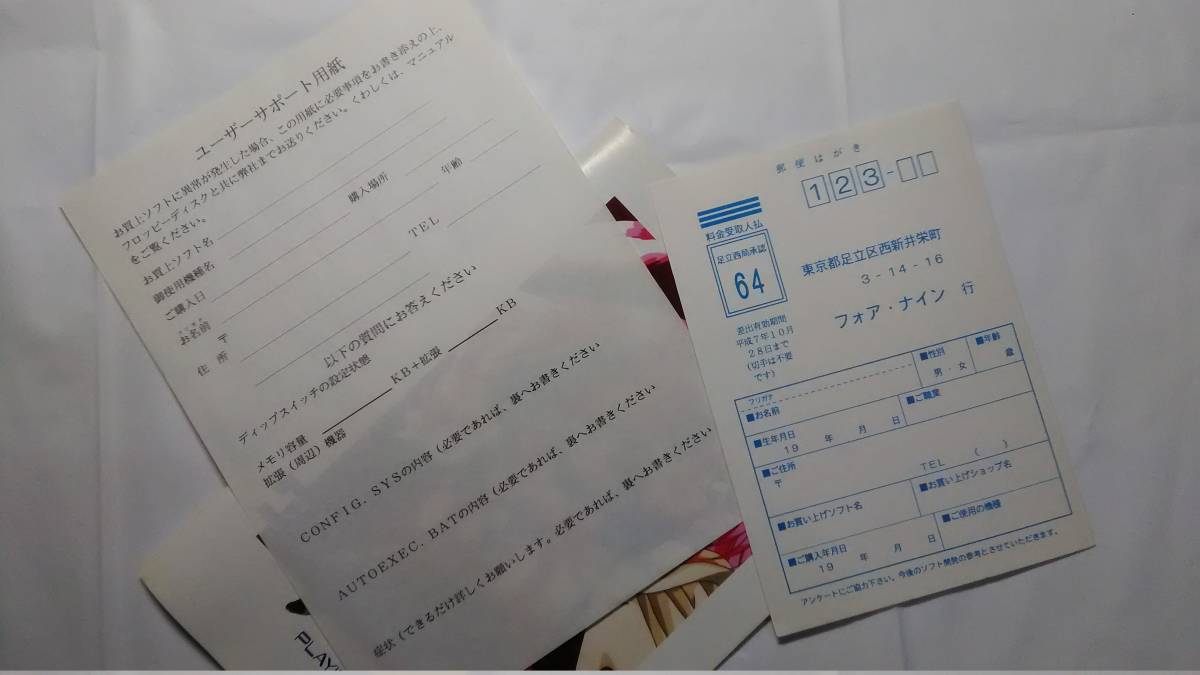 ユーザーサポート用紙
お買上ソフトに異常が発生した場合、この用紙に必要事項をお書き添えの上、
フロッピーディスクと共に弊社までお送りください。くわしくは、マニュアル
をご覧ください。
お買上ソフト名
御使用機種名
ご購入日 購入場所
お名前 年齢
住 所 〒 TEL
以下の質問にお答えください
ディップスイッチの設定状態
メモリ容量 KB+拡張 KB
拡張(周辺)機器
CONFIG. SYSの内容(必要であれば、裏へお書きください
AUTOEXEC. BATの内容(必要であれば、裏へお書きください
症状(できるだけ詳しくお願いします。必要であれば、裏へお書きください
PLAY
郵便はがき
123-
料金受取人払
足立西局承認
64
差出有効期間
平成7年10月
28日まで
(切手は不要
です)
東京都足立区西新井栄町
3-14-16
フォア・ナイン 行
フリガナ
■お名前
■性別
男・女
■年齢
歳
■生年月日
19 年 月 日
■ご職業
■ご住所
〒
TEL ( )
■お買い上げソフト名
■お買い上げショップ名
■ご購入年月日
19 年 月 日
■ご使用の機種
アンケートにご協力下さい。今後のソフト開発の参考とさせていただきます。